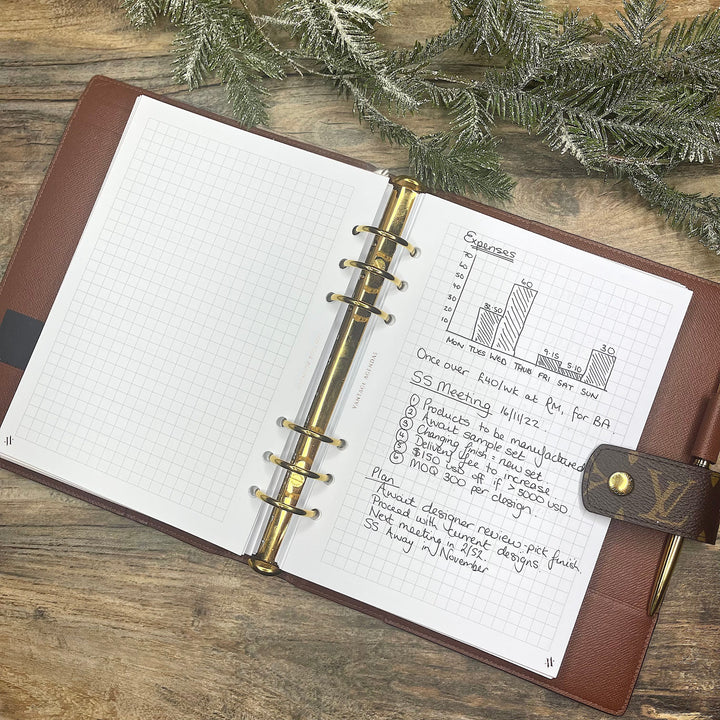 VANTAGE AGENDAS
Expenses
70
60
50
40
30
20
10
60
38.50
9.15
5.10
30
MON TUES WED THUR FRI SAT SUN
Once over £40/wk at RM, for BA.
SS Meeting 16/11/22
1 Products to be manufactured
2 Await sample set
3 Changing finish = new set
4 Delivery fee to increase
5 $150 USD off if > 5000 USD
6 MOQ 300 per design.
Plan
Await designer review: pick finish.
Proceed with current designs.
Next meeting in 2/52.
SS Away in November
LV